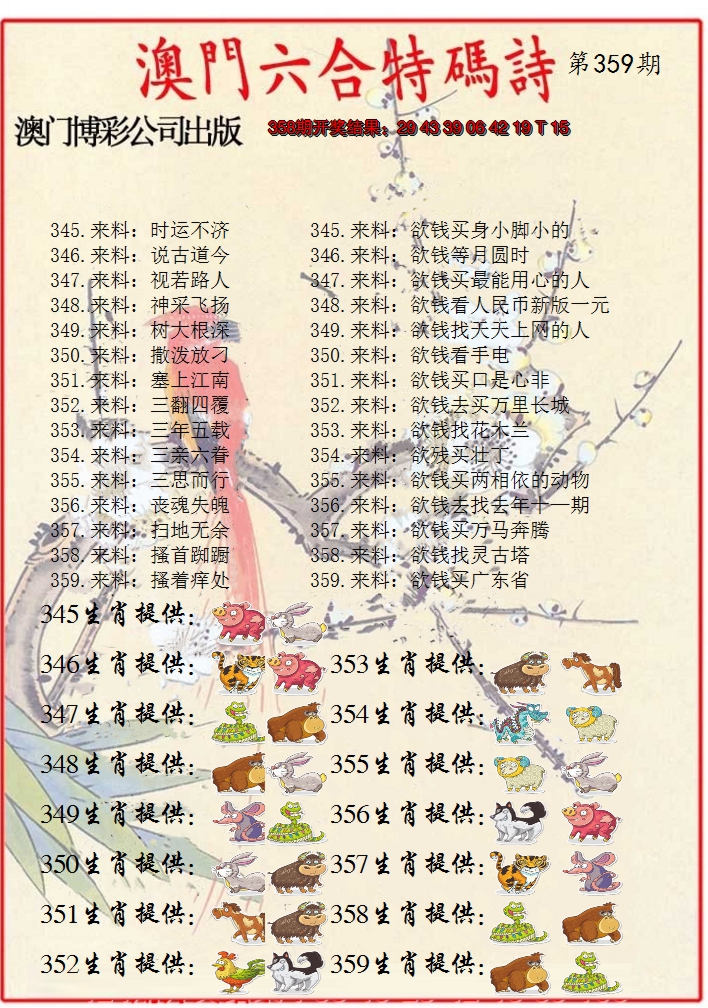 澳門六合特碼詩 第359期
澳门博彩公司出版 358期开奖结果：29 43 39 06 42 19 T 15
345.来料：时运不济 345.来料：欲钱买身小脚小的
346.来料：说古道今 346.来料：欲钱等月圆时
347.来料：视若路人 347.来料：欲钱买最能用心的人
348.来料：神采飞扬 348.来料：欲钱看人民币新版一元
349.来料：树大根深 349.来料：欲钱找天天上网的人
350.来料：撒泼放刁 350.来料：欲钱看手电
351.来料：塞上江南 351.来料：欲钱买口是心非
352.来料：三翻四覆 352.来料：欲钱去买万里长城
353.来料：三年五载 353.来料：欲钱找花木兰
354.来料：三亲六眷 354.来料：欲残买壮丁
355.来料：三思而行 355.来料：欲钱买两相依的动物
356.来料：丧魂失魄 356.来料：欲钱去找去年十一期
357.来料：扫地无余 357.来料：欲钱买万马奔腾
358.来料：搔首踟蹰 358.来料：欲钱找灵古塔
359.来料：搔着痒处 359.来料：欲钱买广东省
345生肖提供：
346生肖提供： 353生肖提供：
347生肖提供： 354生肖提供：
348生肖提供： 355生肖提供：
349生肖提供： 356生肖提供：
350生肖提供： 357生肖提供：
351生肖提供： 358生肖提供：
352生肖提供： 359生肖提供：